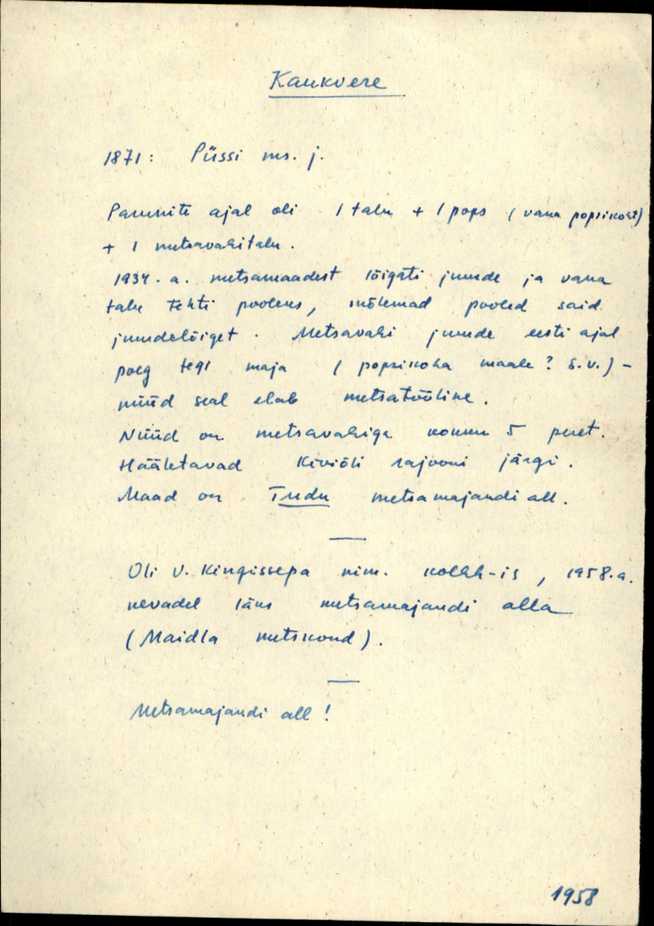 Kaukvere
1871: Püssi ms. j.
Parunite ajal oli 1 talu + 1 pops (vana popsikoht)
+ 1 metsavahitalu.
1934. a. metsamaadest lõigati juurde ja vana
talu tehti pooleks, mõlemad pooled said
juurdelõiget. Metsavahi juurde eesti ajal
poeg tegi maja (popsikoha maale? S.V.) -
nüüd seal elab metsatööline.
Nüüd on metsavahiga kokku 5 peret.
Hääletavad Kiviõli rajooni järgi.
Maad on Tudu metsamajandi all.
Oli V. Kingissepa nim. kolkh-is, 1958.a.
kevadel läks metsamajandi alla
(Maidla metskond).
Metsamajandi all!
1958